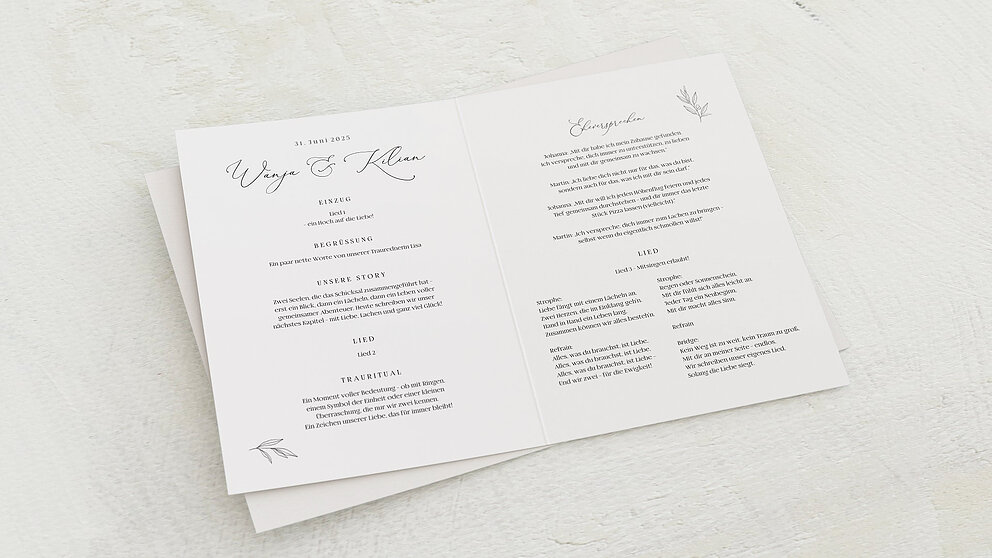 31. Juni 2025
Wanja & Kilian
EINZUG
Lied 1
- ein Hoch auf die Liebe!
BEGRÜSSUNG
Ein paar nette Worte von unserer Traurednerin Lisa
UNSERE STORY
Zwei Seelen, die das Schicksal zusammengeführt hat -
erst ein Blick, dann ein Lächeln, dann ein Leben voller
gemeinsamer Abenteuer. Heute schreiben wir unser
nächstes Kapitel - mit Liebe, Lachen und ganz viel Glück!
LIED
Lied 2
TRAURITUAL
Ein Moment voller Bedeutung - ob mit Ringen,
einem Symbol der Einheit oder einer kleinen
Überraschung, die nur wir zwei kennen.
Ein Zeichen unserer Liebe, das für immer bleibt!
Eheversprechen
Johanna: „Mit dir habe ich mein Zuhause gefunden
Ich verspreche, dich immer zu unterstützen, zu lieben
und mit dir gemeinsam zu wachsen."
Martin: „Ich liebe dich nicht nur für das, was du bist,
sondern auch für das, was ich mit dir sein darf."
Johanna: „Mit dir will ich jeden Höhenflug feiern und jedes
Tief gemeinsam durchstehen - und dir immer das letzte
Stück Pizza lassen (vielleicht)."
Martin: „Ich verspreche, dich immer zum Lachen zu bringen -
selbst wenn du eigentlich schmollen willst!"
LIED
Lied 3 - Mitsingen erlaubt!
Strophe:
Liebe fängt mit einem Lächeln an,
Zwei Herzen, die im Einklang geh'n.
Hand in Hand ein Leben lang,
Zusammen können wir alles besteh'n.
Refrain:
Alles, was du brauchst, ist Liebe,
Alles, was du brauchst, ist Liebe,
Alles, was du brauchst, ist Liebe -
Und wir zwei - für die Ewigkeit!
Strophe:
Regen oder Sonnenschein,
Mit dir fühlt sich alles leicht an.
Jeder Tag ein Neubeginn,
Mit dir macht alles Sinn.
Refrain
Bridge:
Kein Weg ist zu weit, kein Traum zu groß,
Mit dir an meiner Seite - endlos.
Wir schreiben unser eigenes Lied,
Solang die Liebe siegt.